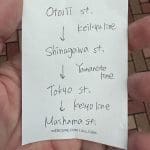 Otorii st.
Keikyu line
Shinagawa st.
Yamanote
line
Tokyo st.
Keiyo line
Maihama st.